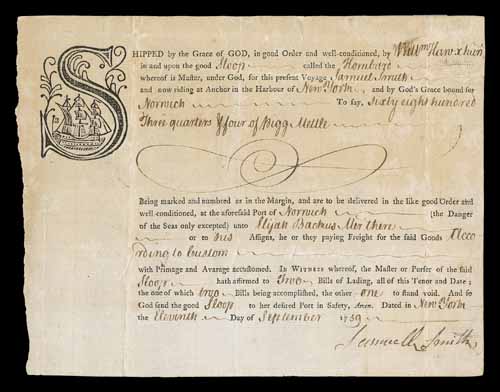 SHIPPED by the Grace of GOD, in good Order and well-conditioned, by Willm Hawxhurst
in and upon the good Sloop called the
whereof is Master, under God, for this present Voyage Samuel Smith
and now riding at Anchor in the Harbour of New York, and by God's Grace bound for
Norwich To say, Sixty eight hundred
Three quarters & four of Pigg Mettle
Being marked and numbred as in the Margin, and are to be delivered in the like good Order and
well-conditioned, at the aforesaid Port of Norwich (the Danger
of the Seas only excepted) unto Elijah Backus Merchent
or to his Assigns, he or they paying Freight for the said Goods Acco
rding to Custom
with Primage and Avarage accustomed. In WITNESS whereof, the Master or Purser of the said
Sloop hath affirmed to Two Bills of Lading, all of this Tenor and Date;
the one of which two Bills being accomplished, the other one to stand void. And so
God send the good Sloop to her desired Port in Safety, Amen. Dated in New York
the Eleventh Day of September 1759
Samuell Smith